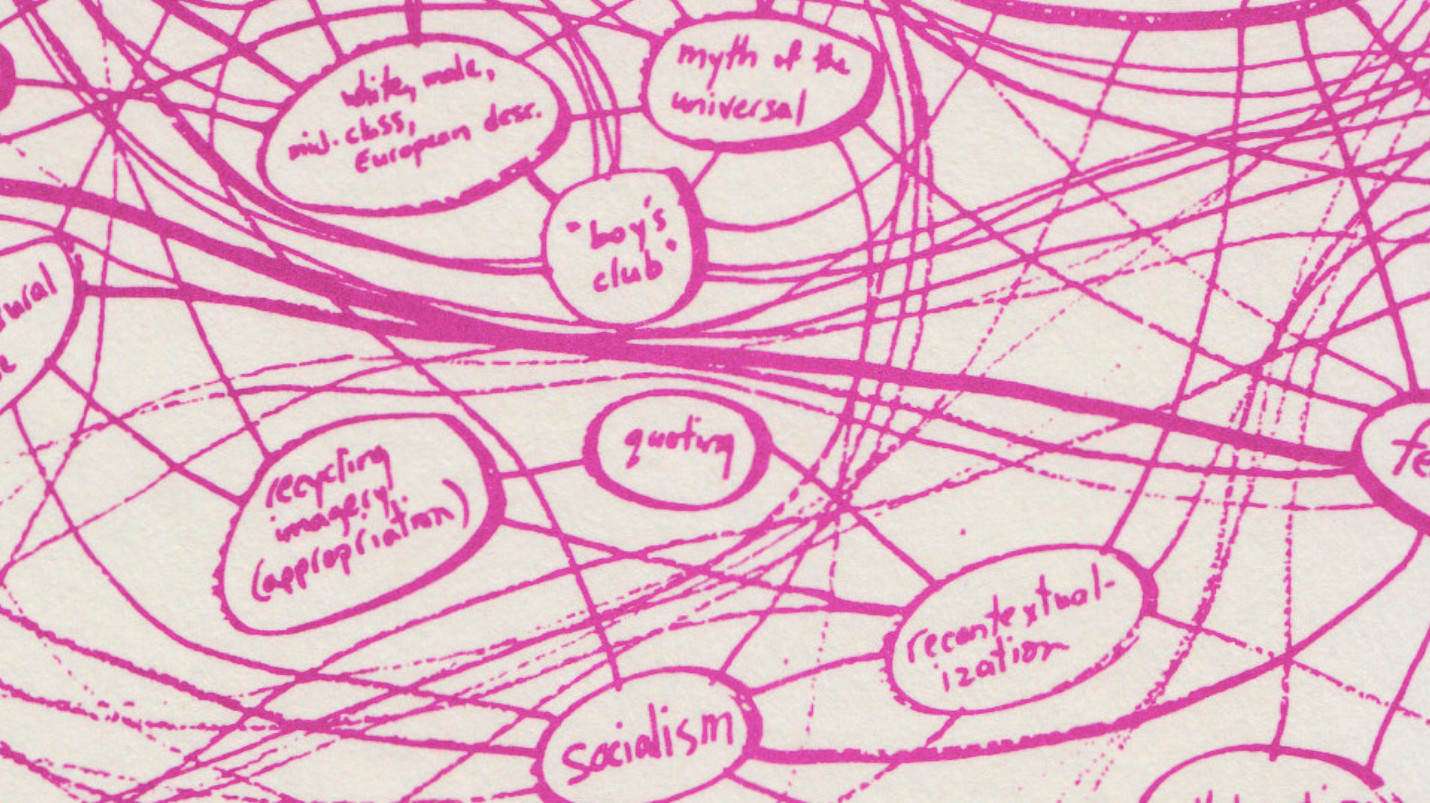 white, male,
mid. class,
European desc.
myth of the
universal
"boy's
club"
recycling
imagery
(appropriation)
quoting
recontextual-
ization
socialism